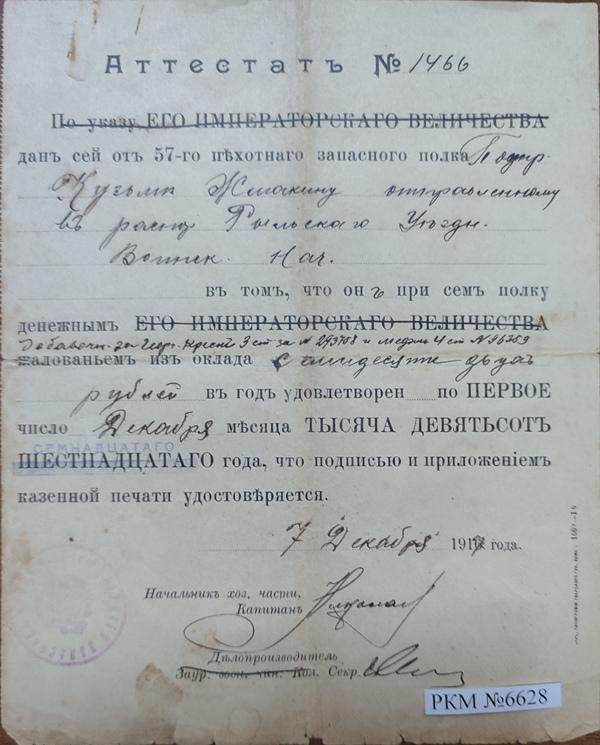 Аттестатъ № 1466
По указу ЕГО ИМПЕРАТОРСКАГО ВЕЛИЧЕСТВА
данъ сей отъ 57-го пѣхотнаго запаснаго полка Подпр.
Кузьмѣ Жмакину отправленному
въ расп. Рыльскаго Уѣздн.
Воинск. Нач.
въ томъ, что онъ при семъ полку
денежнымъ ЕГО ИМПЕРАТОРСКАГО ВЕЛИЧЕСТВА
Добавочн. за Геор. крест 3 ст за № и медаль 4 ст №
жалованьемъ изъ оклада двухъ
рублей въ годъ удовлетворен по ПЕРВОЕ
число Декабря мѣсяца ТЫСЯЧА ДЕВЯТЬСОТЪ
СЕМНАДЦАТАГО
ШЕСТНАДЦАТАГО года, что подписью и приложеніемъ
казенной печати удостовѣряется.
7 Декабря 1917 года.
Начальникъ хоз. части,
Капитанъ
Дѣлопроизводитель
Заур. воен. чин. Кол. Секр.
РКМ №6628